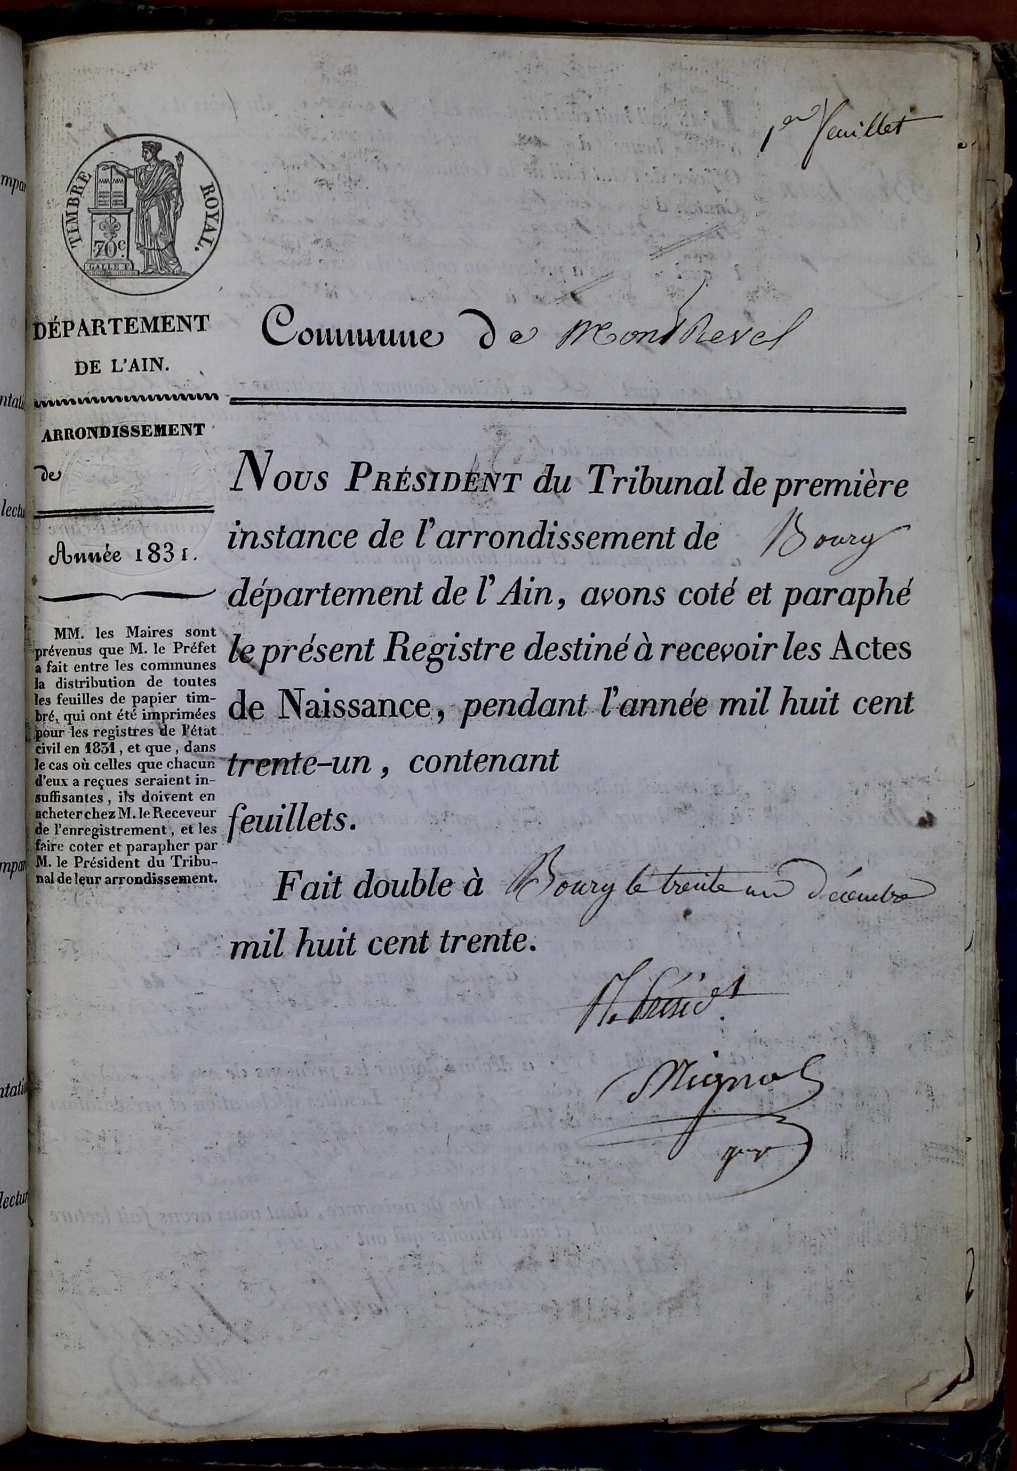 1er feuillet
TIMBRE ROYAL.
70c
DÉPARTEMENT
DE L'AIN.
Commune de Montrevel
ARRONDISSEMENT
de
Année 1831.
MM. les Maires sont
prévenus que M. le Préfet
a fait entre les communes
la distribution de toutes
les feuilles de papier tim-
bré, qui ont été imprimées
pour les registres de l'état
civil en 1831, et que, dans
le cas où celles que chacun
d'eux a reçues seraient in-
suffisantes, ils doivent en
acheter chez M. le Receveur
de l'enregistrement, et les
faire coter et parapher par
M. le Président du Tribu-
nal de leur arrondissement.
NOUS PRÉSIDENT du Tribunal de première
instance de l'arrondissement de Bourg
département de l'Ain, avons coté et paraphé
le présent Registre destiné à recevoir les Actes
de Naissance, pendant l'année mil huit cent
trente-un, contenant
feuillets.
Fait double à Bourg le trente un Décembre
mil huit cent trente.